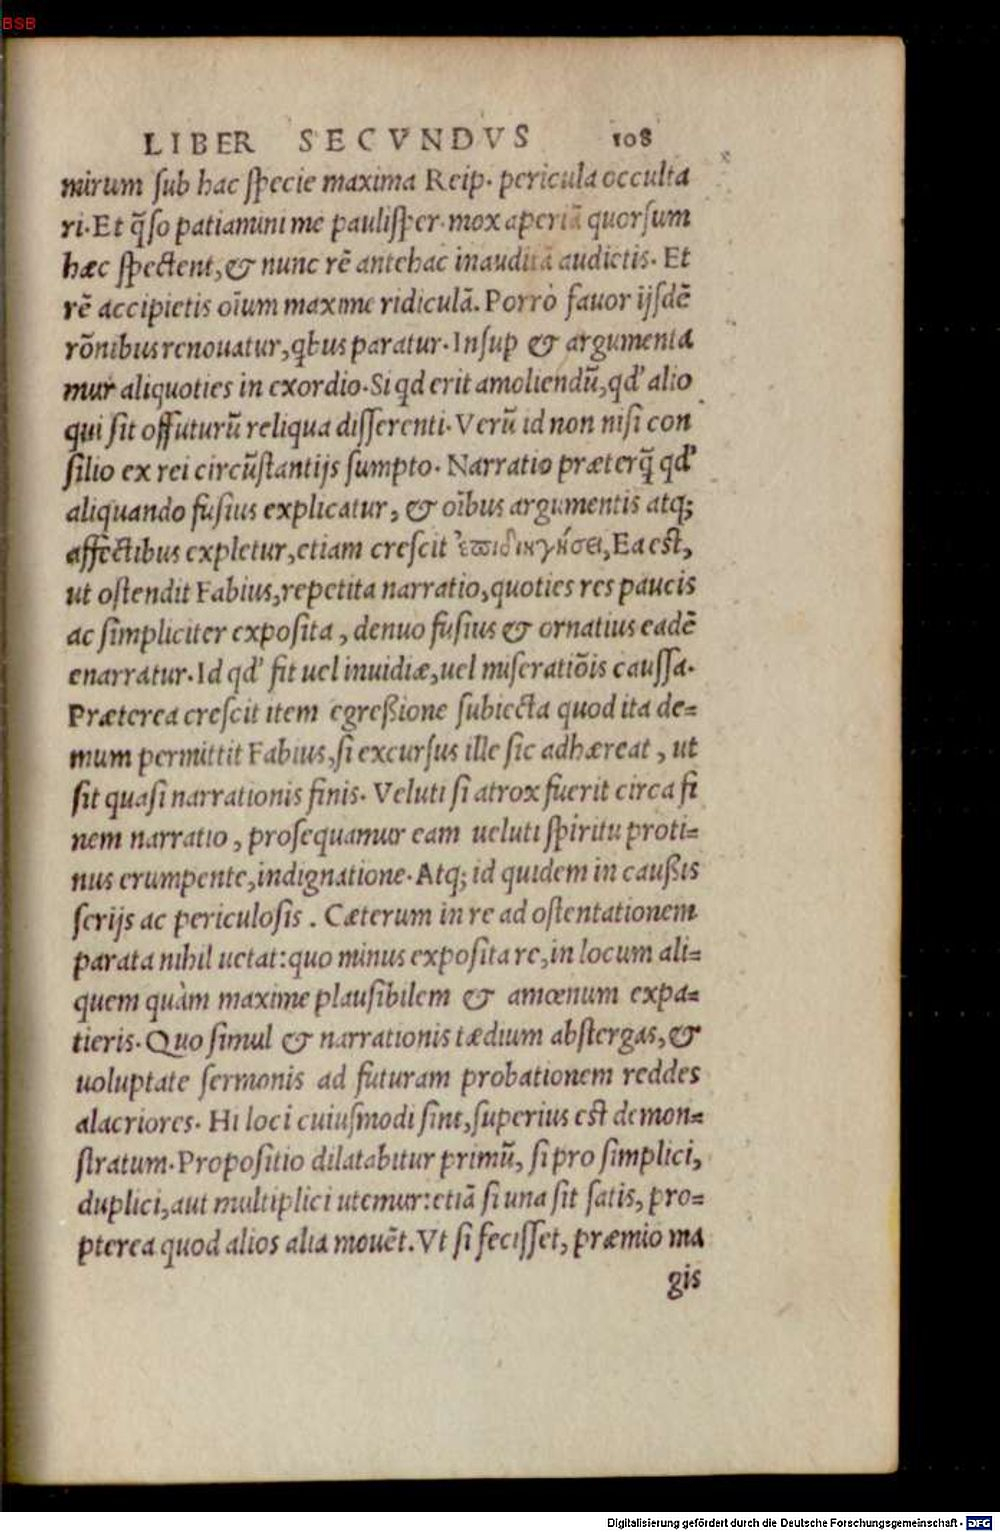 BSB
LIBER SECVNDVS 108
mirum ſub hac ſpecie maxima Reip. pericula occulta
ri. Et q̃ſo patiamini me pauliſper. mox aperiã quorſum
hæc ſpectent, & nunc rẽ antehac inauditã audietis. Et
rẽ accipietis oĩum maxime ridiculã. Porrò fauor ijſdẽ
rõnibus renouatur, qbus paratur. Inſup & argumenta
mur aliquoties in exordio. Si qd erit amoliendũ, qd' alio
qui ſit offuturũ reliqua diſſerenti. Verũ id non niſi con
ſilio ex rei circũſtantijs ſumpto. Narratio præterq̃ qd'
aliquando fuſius explicatur, & oĩbus argumentis atq;
affectibus expletur, etiam creſcit ἐπιδιηγήσει, Ea eſt,
ut oſtendit Fabius, repetita narratio, quoties res paucis
ac ſimpliciter expoſita, denuo fuſius & ornatius eadẽ
enarratur. Id qd' fit uel inuidiæ, uel miſeratiõis cauſſa.
Præterea creſcit item egreßione ſubiecta quod ita de=
mum permittit Fabius, ſi excurſus ille ſic adhæreat, ut
ſit quaſi narrationis finis. Veluti ſi atrox fuerit circa fi
nem narratio, proſequamur eam ueluti ſpiritu proti=
nus erumpente, indignatione. Atq; id quidem in caußis
ſerijs ac periculoſis. Cæterum in re ad oſtentationem
parata nihil uetat: quo minus expoſita re, in locum ali=
quem quàm maxime plauſibilem & amœnum expa=
tieris. Quo ſimul & narrationis tædium abſtergas, &
uoluptate ſermonis ad futuram probationem reddes
alacriores. Hi loci cuiuſmodi ſint, ſuperius eſt demon=
ſtratum. Propoſitio dilatabitur primũ, ſi pro ſimplici,
duplici, aut multiplici utemur: etiã ſi una ſit ſatis, pro=
pterea quod alios alia mouẽt. Vt ſi feciſſet, præmio ma
gis
Digitalisierung gefördert durch die Deutsche Forschungsgemeinschaft - DFG